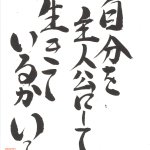 自分を
主人公にして
生きて
いるかい。